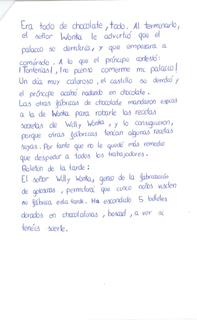 Era todo de chocolate, todo. Al terminarlo,
el señor Wonka le advirtió que el
palacio se derretiría, y que empezara a
comérselo. A lo que el príncipe contestó:
¡Tonterías! ¡no pienso comerme mi palacio!
Un día muy caluroso, el castillo se derritió y
el príncipe acabó nadando en chocolate.
Las otras fábricas de chocolate mandaron espías
a la de Wonka para robarle las recetas
secretas de Willy Wonka, y lo consiguieron,
porque otras fábricas tenían algunas recetas
suyas. Por tanto que no le quedó más remedio
que despedir a todos los trabajadores.
Boletín de la tarde:
El señor Willy Wonka, genio de la fabricación
de golosinas, permitirá que cinco niños visiten
su fábrica esta tarde. Ha escondido 5 billetes
dorados en chocolatinas, buscad, a ver si
tenéis suerte.